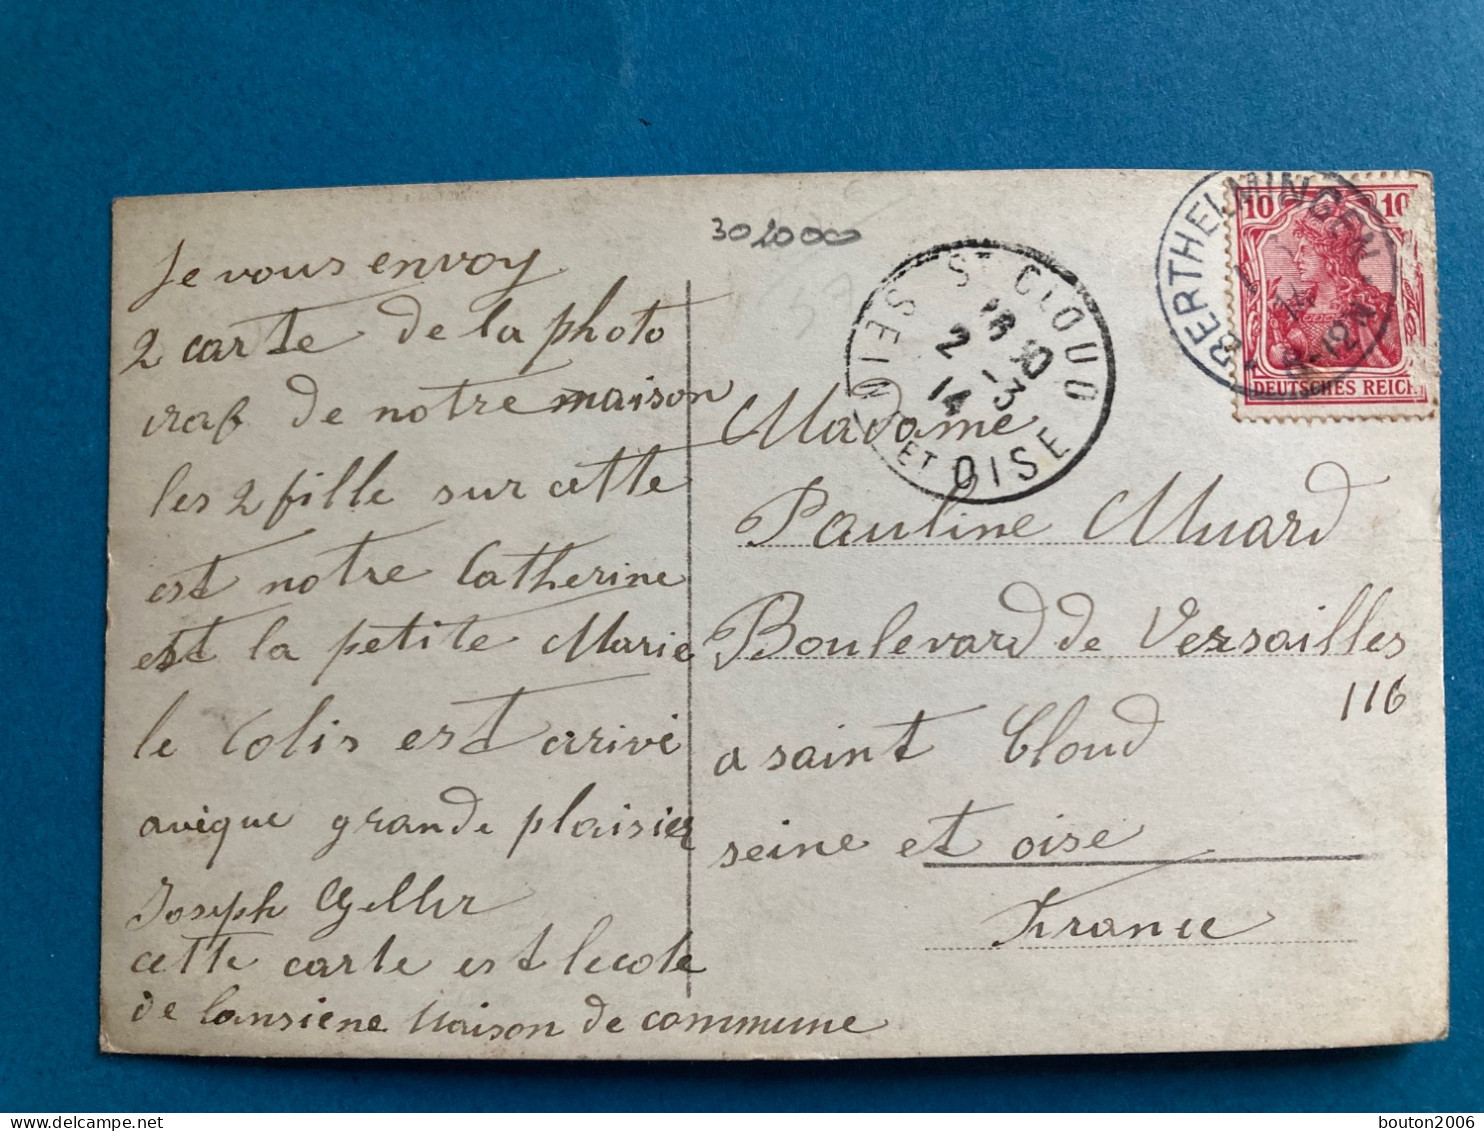 3020000
Je vous envoy
2 carte de la photo
iraf de notre maison
les 2 fille sur cette
est notre Catherine
est la petite Marie
le Colis est arivé
avèque grande plaisier
Joseph Geller
cette carte est lecole
de lansiene Maison de commune
ST CLOUD
SEINE ET OISE
2 - 3
14
BERTHELMINGEN
8-12 N
10 10
DEUTSCHES REICH
Madame
Pauline Muard
Boulevard de Versailles
116
a saint Cloud
seine et oise
France
delcampe.net
bouton2006